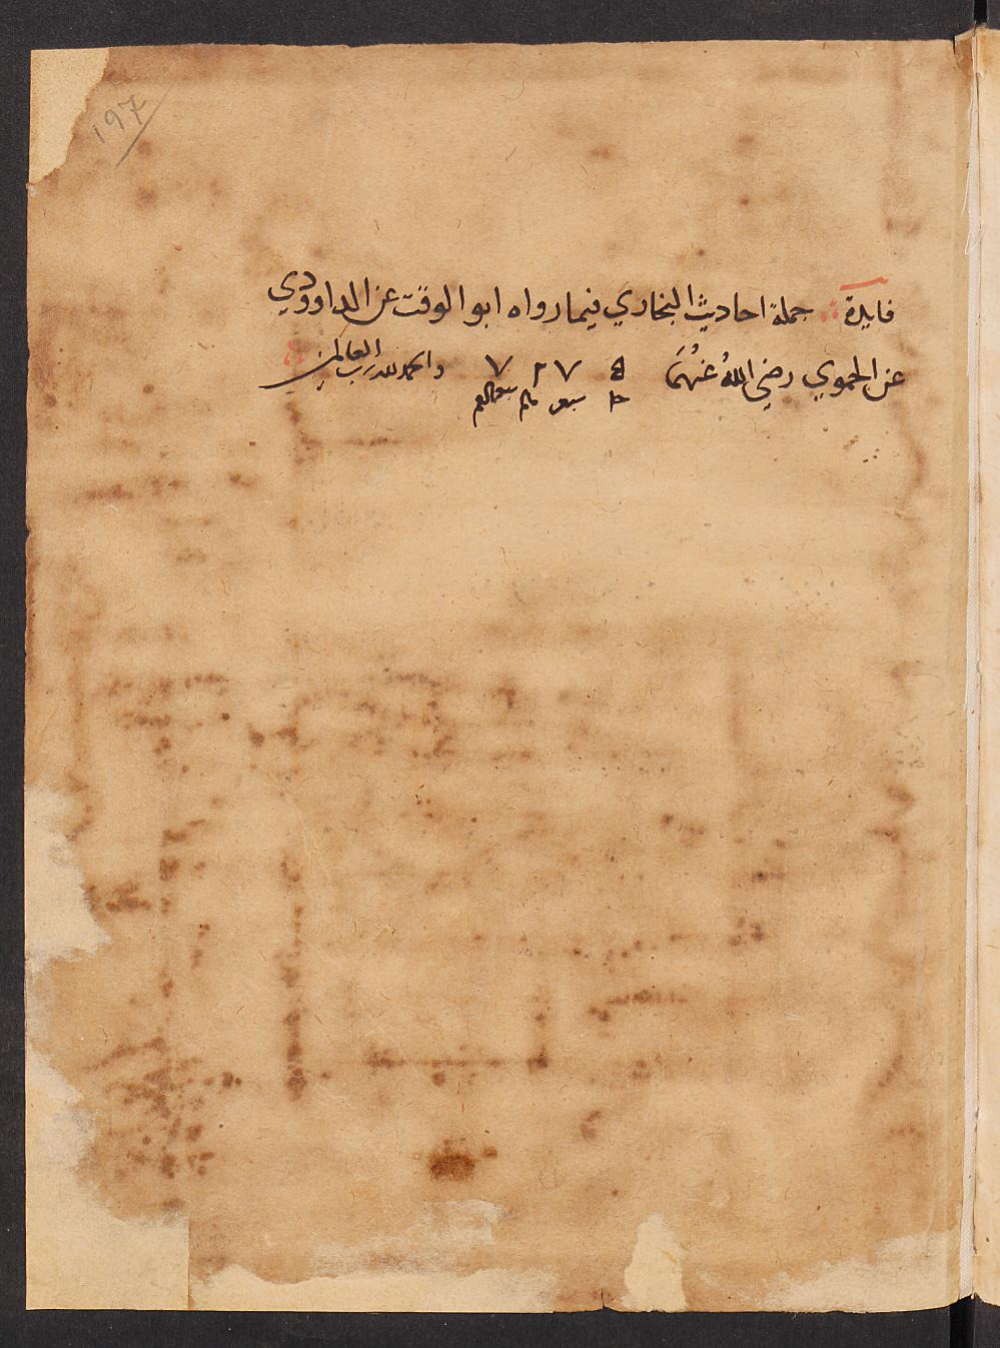 ١٩٧
فايدة جملة احاديث البخاري فيما رواه ابو الوقت عن الداوودي
عن الحموي رضي الله عنهما ٧ ٢ ٧ والحمد لله رب العالمين